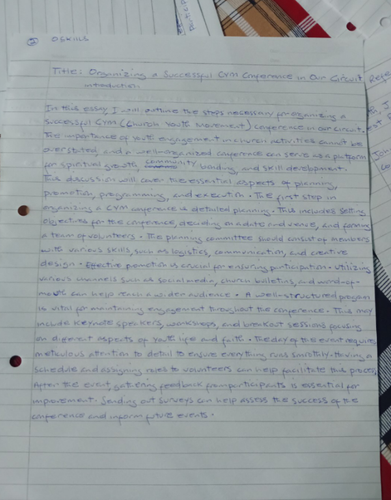 ② SKILLS
Title: Organizing a Successful GYM Conference in Our Circuit
Introduction.
In this essay I will outline the steps necessary for organizing a
successful GYM (Church Youth Movement) conference in our circuit.
The importance of youth engagement in church activities cannot be
overstated, and a well-organized conference can serve as a platform
for spiritual growth community building and skill development.
This discussion will cover the essential aspects of planning,
promotion, programming, and execution. The first step in
organizing a GYM conference is detailed planning. This includes setting
objectives for the conference, deciding on a date and venue, and forming
a team of volunteers. The planning committee should consist of members
with various skills, such as logistics, communication, and creative
design. Effective promotion is crucial for ensuring participation. Utilizing
various channels such as social media, church bulletins, and word-of-
mouth can help reach a wider audience. A well-structured program
is vital for maintaining engagement throughout the conference. This may
include keynote speakers, workshops, and breakout sessions focusing
on different aspects of youth life and faith. The day of the event requires
meticulous attention to detail to ensure everything runs smoothly. Having a
schedule and assigning roles to volunteers can help facilitate this process.
After the event, gathering feedback from participants is essential for
improvement. Sending out surveys can help assess the success of the
conference and inform future events.